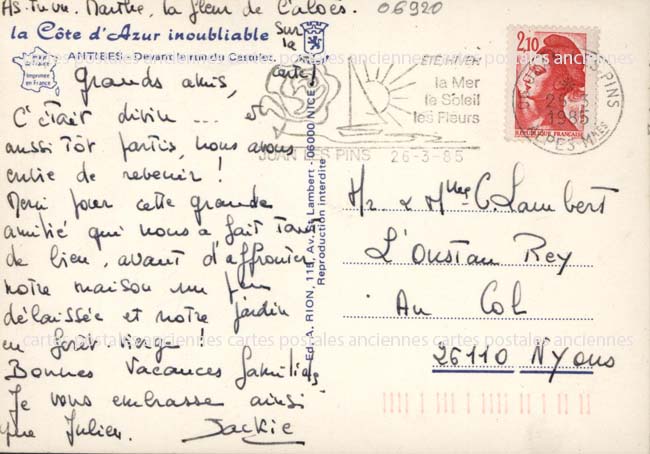 AS-tu vu Marthe, la fleur de l'aloès. 06920
la Côte d'Azur inoubliable
Sur la carte!
ANTIBES - Devant la rue du
Imprimée en France
Grands amis,
C'était divin ... et
aussi tôt partis, nous avons
envie de revenir!
Merci pour cette grande
amitié qui nous a fait tant
de bien, avant d'affronter
notre maison un peu
délaissée et notre jardin
en forêt vierge!
Bonnes Vacances familiales
Je vous embrasse ainsi
que Julien. Jackie
Ed. A. RION, 119, Av. St. Lambert - 06000 NICE
Reproduction interdite
ETE HIVER
la Mer
le Soleil
les Fleurs
JUAN LES PINS 26-3-85
2,10
REPUBLIQUE FRANÇAISE
PINS
1985
ALPES Mmes
Mr & Mme C. Lambert
L'Oustau Rey
Au Col
26110 Nyons
cartes postales anciennes cartes postales anciennes cartes postales anciennes